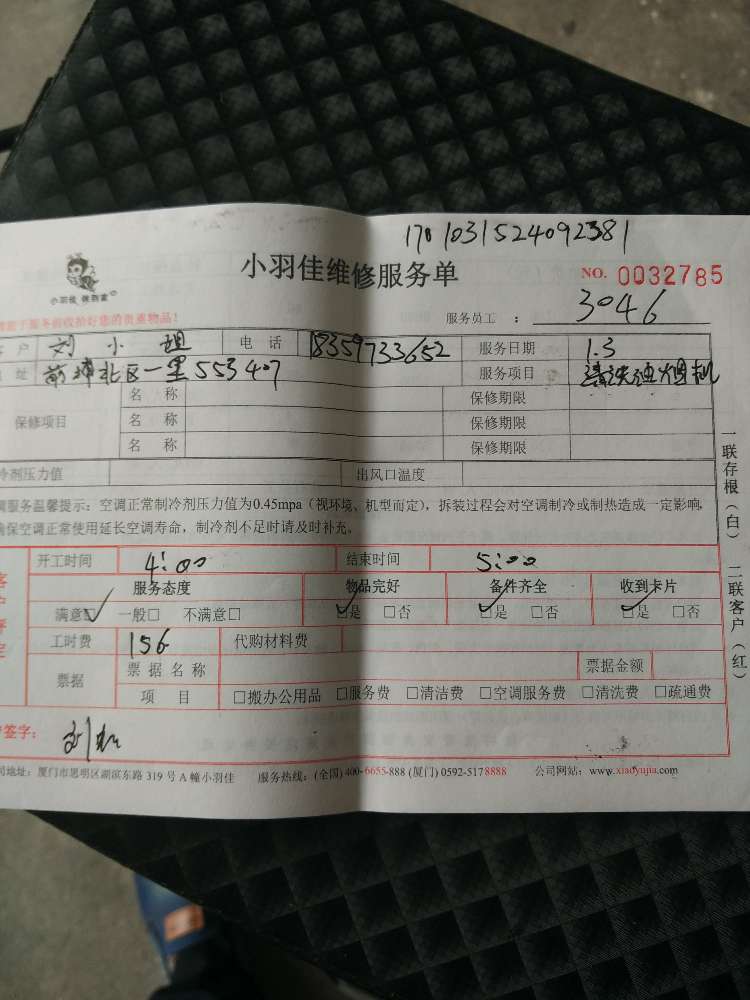 170103152409238１
小羽佳维修服务单
NO. 0032785
小羽佳 保到家
服务员工 : 3046
服务前收拾好您的贵重物品!
户 刘小姐 电话 18359733652 服务日期 1.3
址 前埔北区一里553407 服务项目 清洗油烟机
保修项目 名称 保修期限
名称 保修期限
名称 保修期限
冷剂压力值 出风口温度
调服务温馨提示:空调正常制冷剂压力值为0.45mpa(视环境、机型而定),拆装过程会对空调制冷或制热造成一定影响,
确保空调正常使用延长空调寿命,制冷剂不足时请及时补充。
开工时间 4:00 结束时间 5:00
服务态度 物品完好 备件齐全 收到卡片
满意☑ 一般□ 不满意□ ☑是 □否 ☑是 □否 ☑是 □否
工时费 156 代购材料费
票据 票据名称 票据金额
项目 □搬办公用品 □服务费 □清洁费 □空调服务费 □清洗费 □疏通费
签字:
司地址:厦门市思明区湖滨东路 319 号 A 幢小羽佳 服务热线:(全国) 400-6655-888 (厦门) 0592-5178888 公司网站:www.xiaoyujia.com
一联存根(白) 二联客户(红)